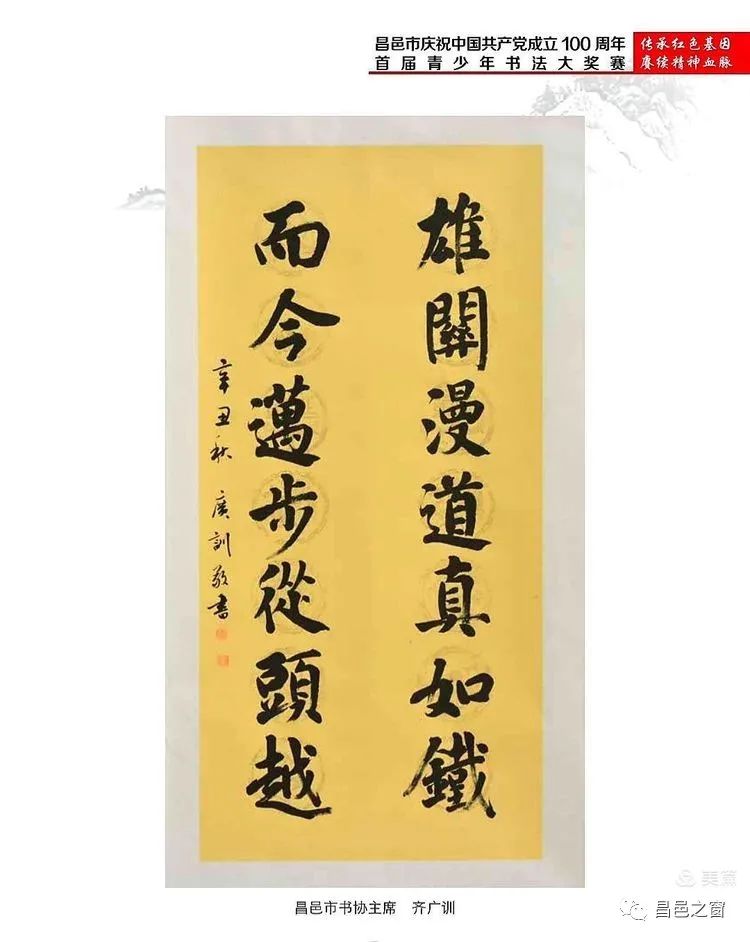 昌邑市庆祝中国共产党成立100周年
首届青少年书法大奖赛
传承红色基因
赓续精神血脉
雄關漫道真如鐵
而今邁步從頭越
辛丑秋 廣訓敬書
昌邑市书协主席 齐广训
美篇
昌邑之窗